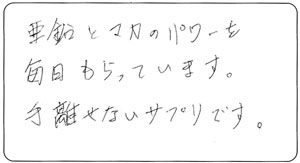 亜鉛とマカのパワーを
毎日もらっています。
手離せないサプリです。